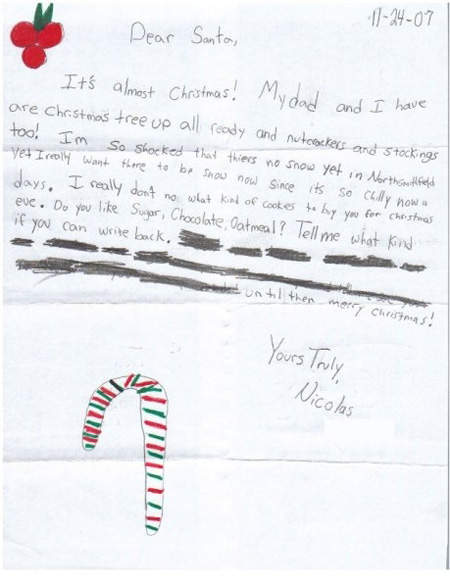 11-24-07
Dear Santa,
It's almost Christmas! My dad and I have
are christmas tree up all ready and nutcrackers and stockings
too! Im so shocked that thiers no snow yet in Northsmithfield
Yet I really want there to be snow now since its so chilly now a
days. I really dont no what kind of cookies to buy you for christmas
eve. Do you like Sugar, Chocolate, Oatmeal? Tell me what kind
if you can write back.
until then merry christmas!
Yours Truly,
Nicolas